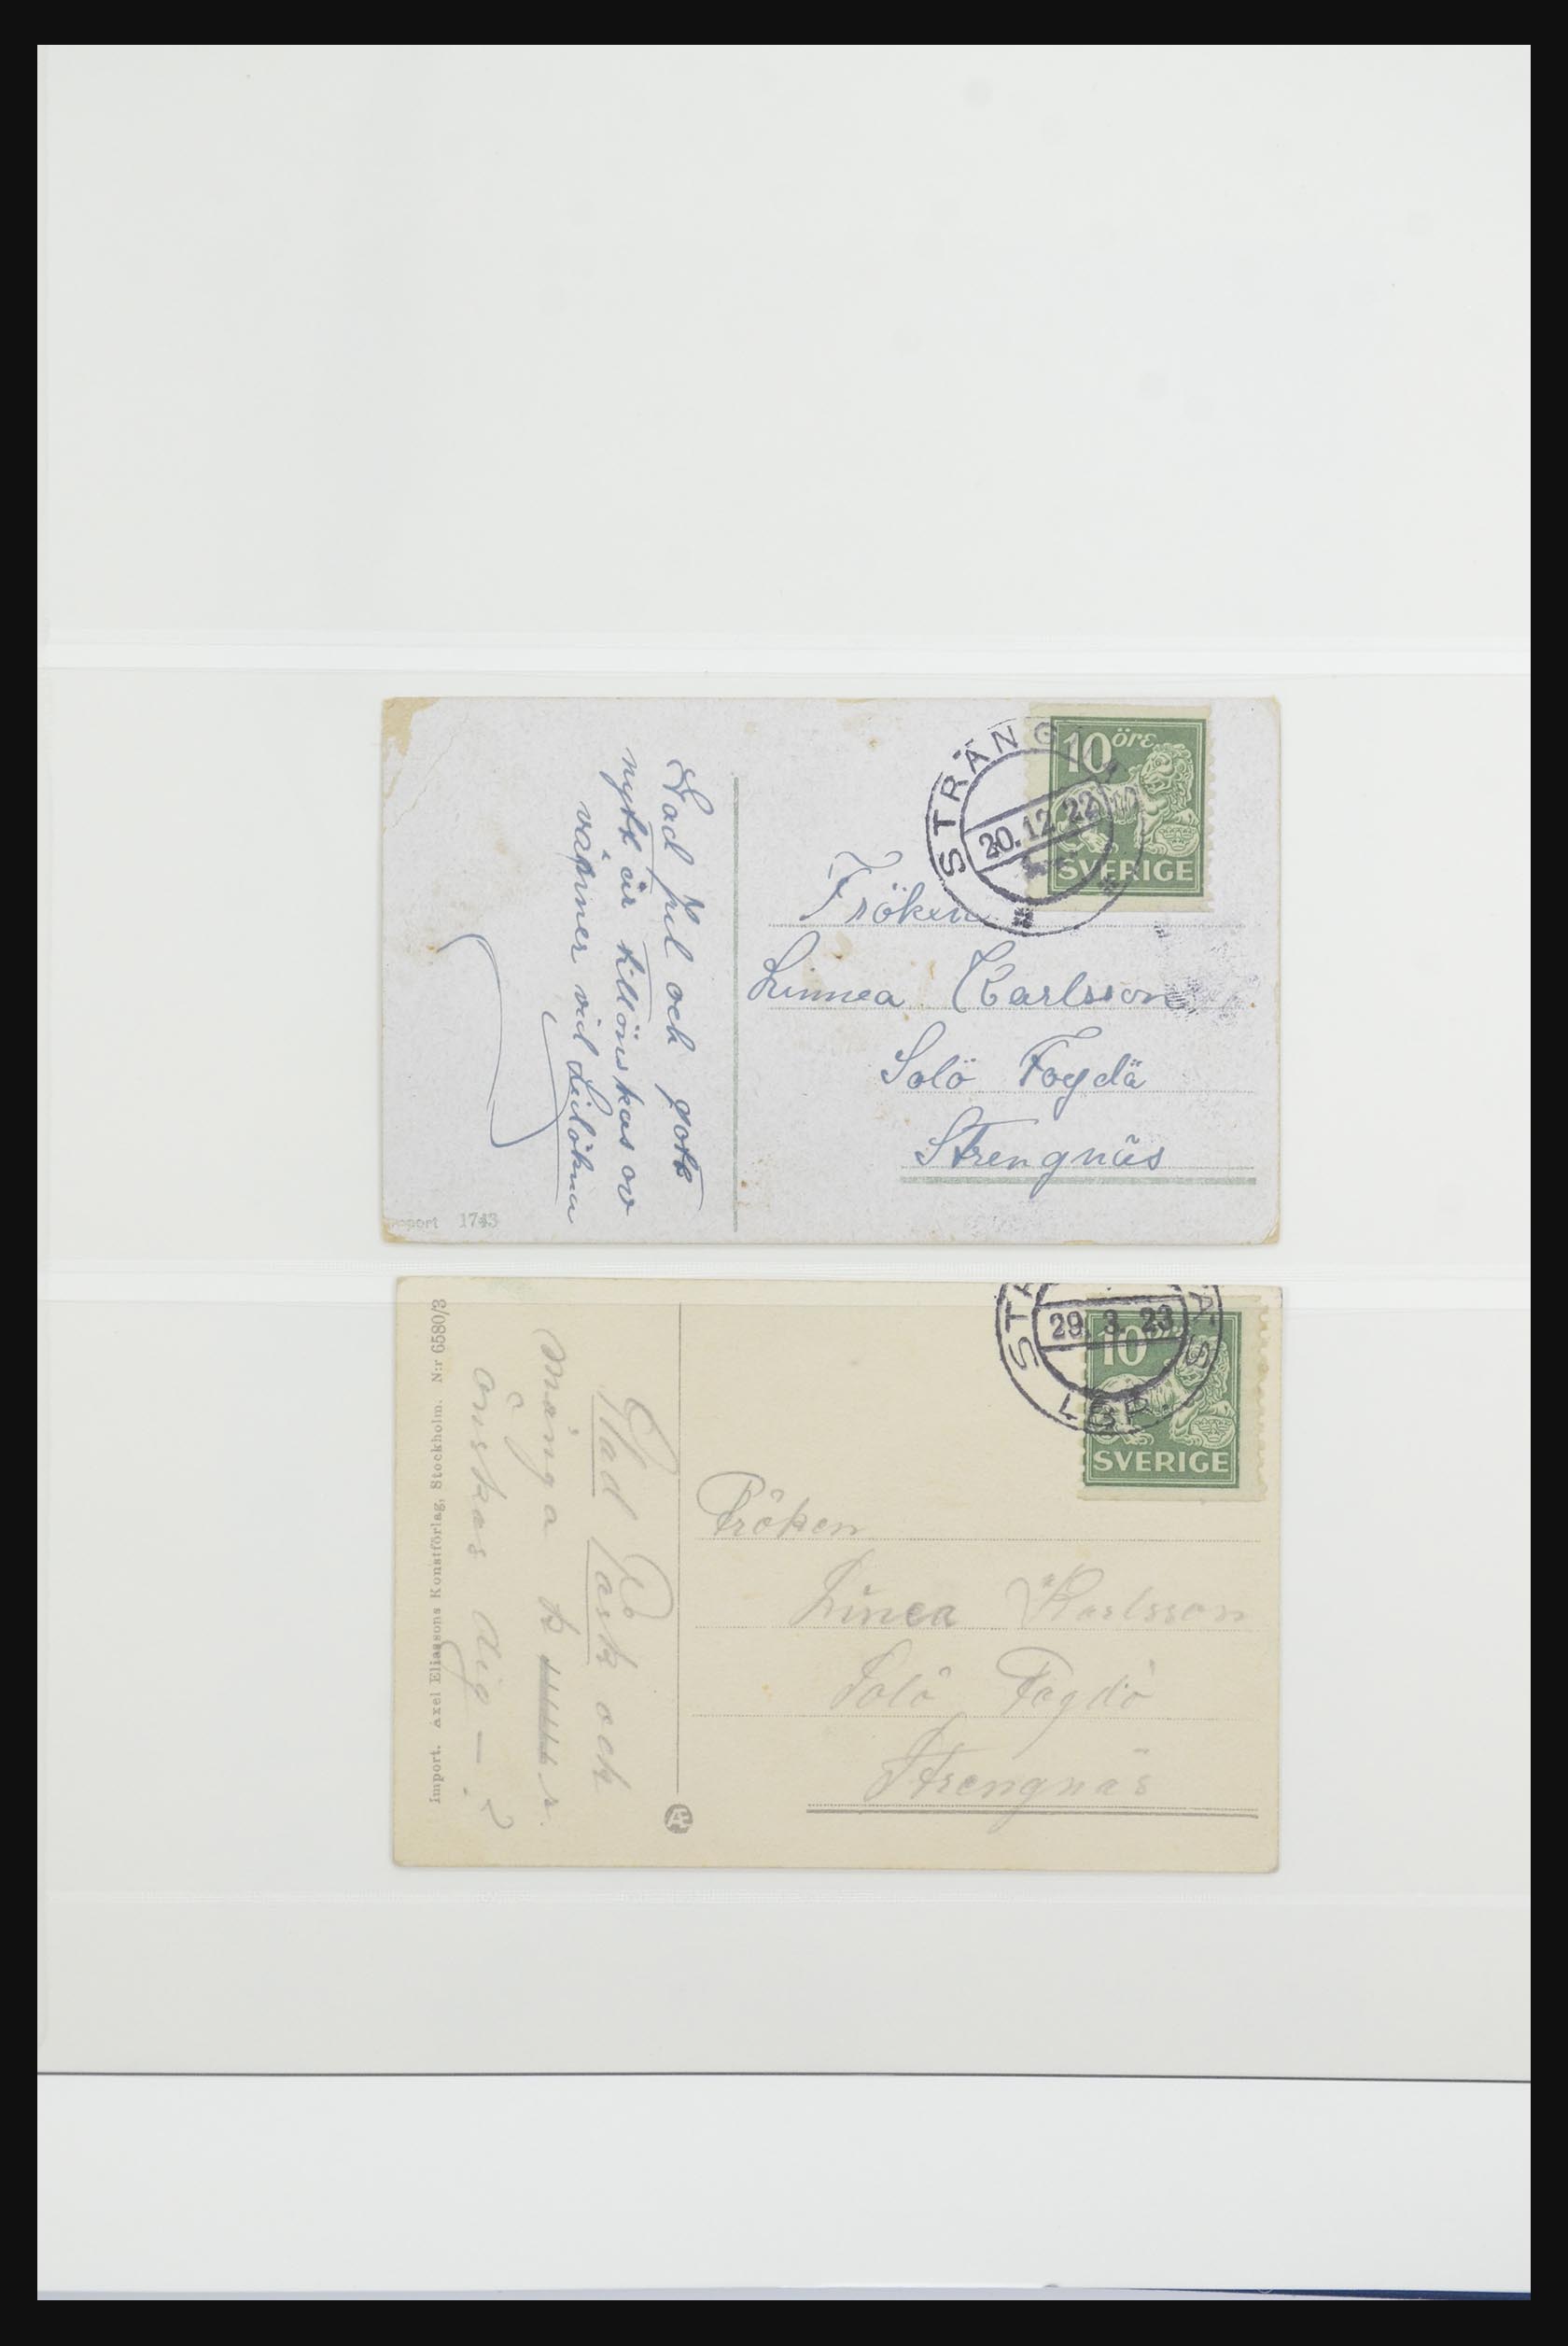 Gad jul och gott
nytt år tillönskas av
vänner vid
port 1743
STRÄNG
20.12.22
10 öre
SVERIGE
Fröken
Linnea Karlsson
Solö Fogdö
Strengnäs
Import. Axel Eliassons Konstförlag, Stockholm. N:r 6580/3
Glad Påsk och
många
önskas dig –
Æ
29.3.23
LBR.
10
SVERIGE
Fröken
Linea Karlsson
Solö Fogdö
Strengnäs